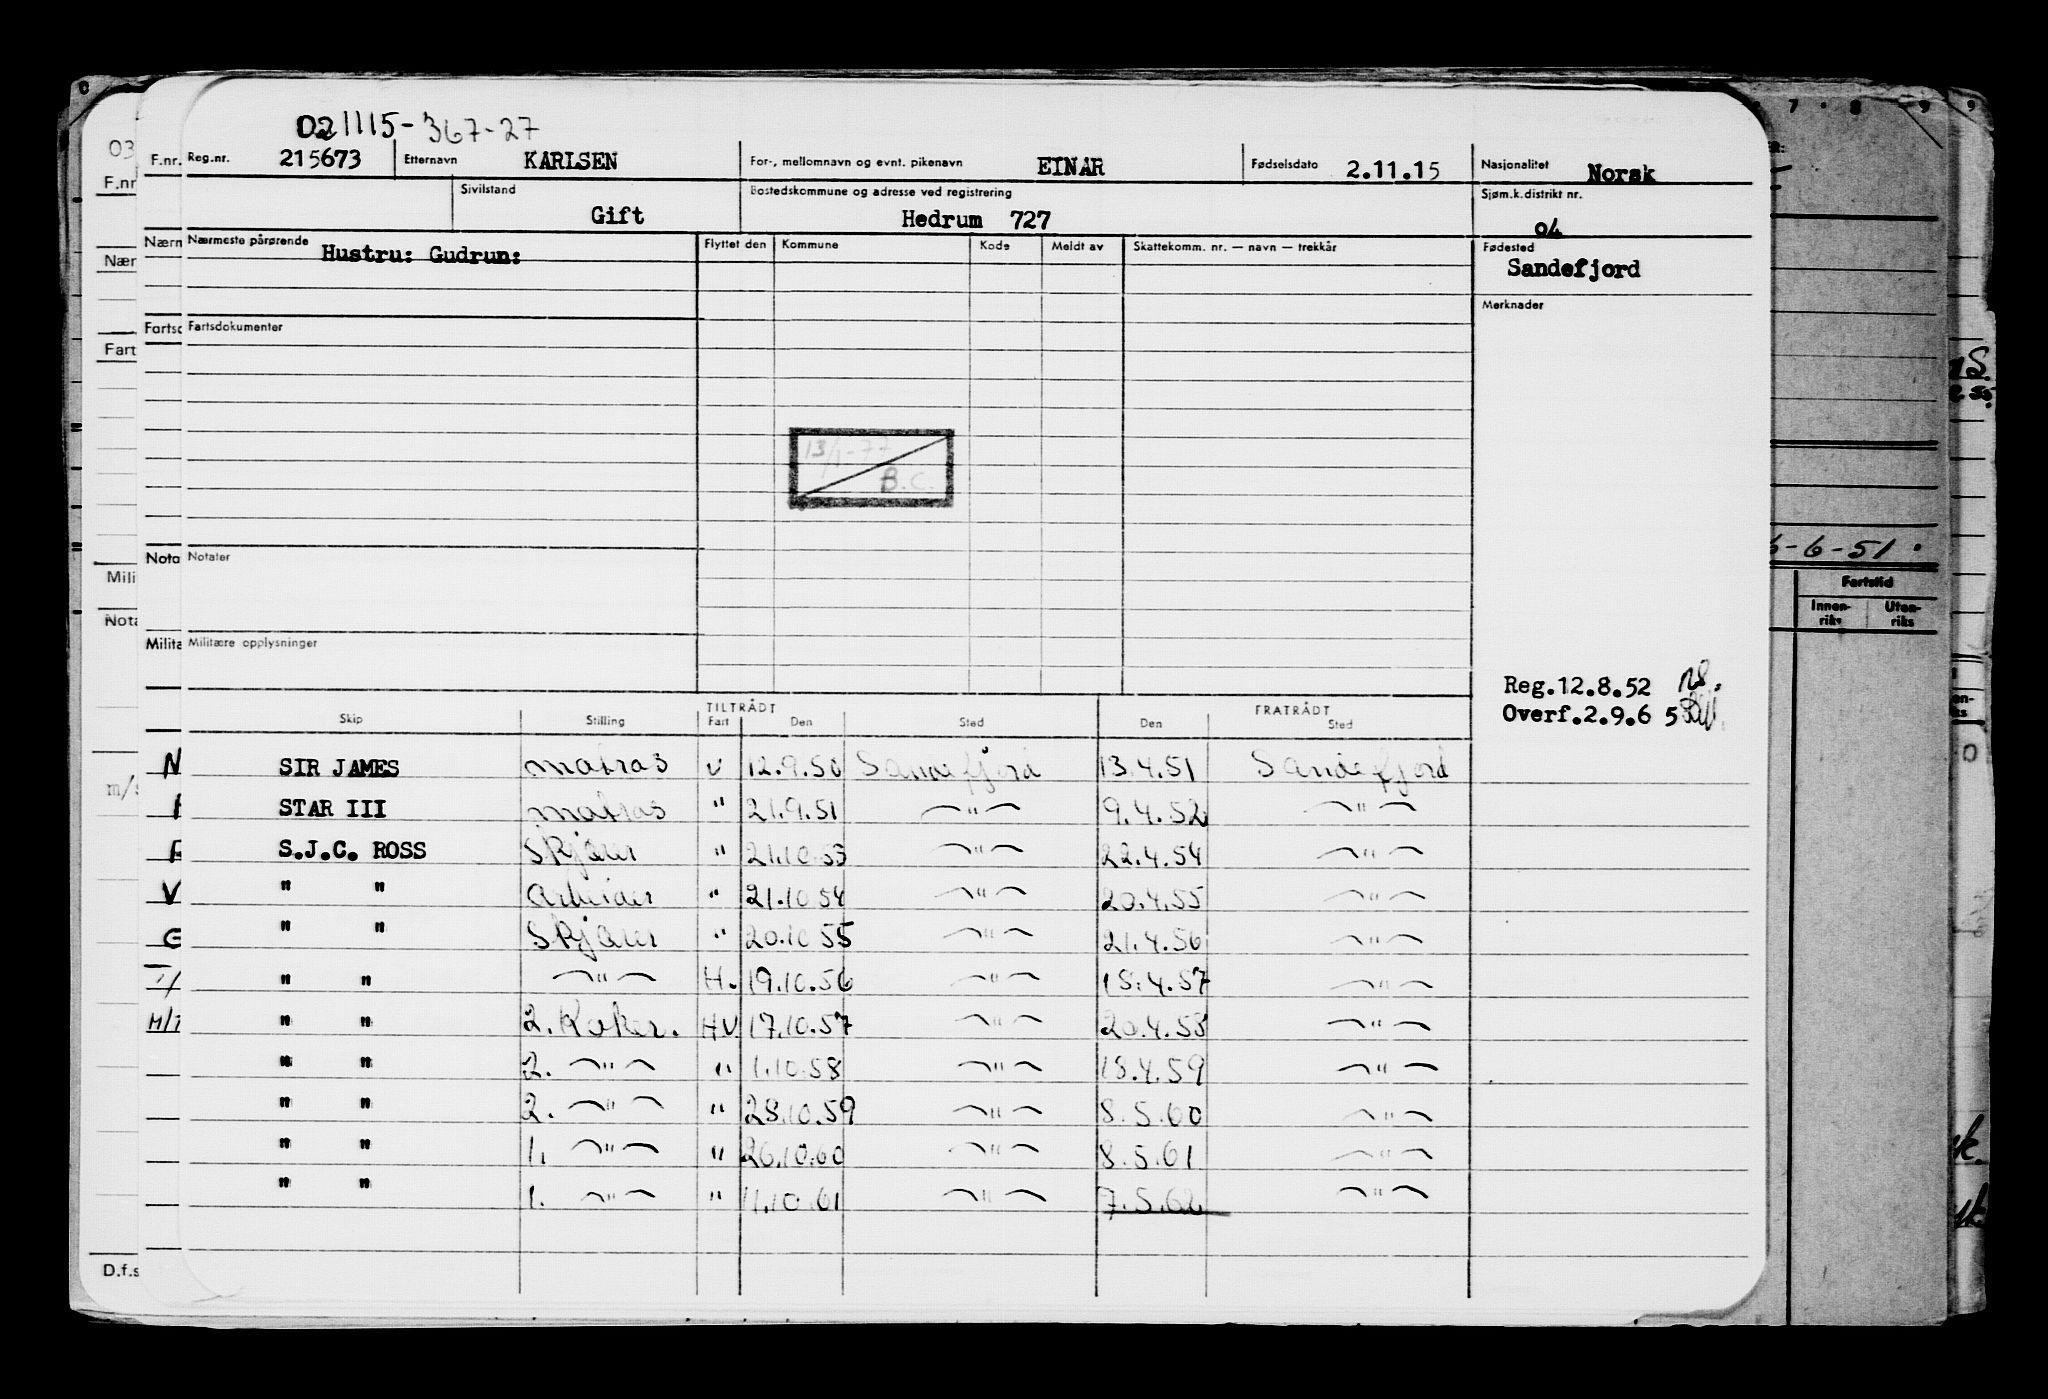 021115-367-27
F.nr. Reg.nr. 215673 Etternavn KARLSEN For-, mellomnavn og evnt. pikenavn EINAR Fødselsdato 2.11.15 Nasjonalitet Norsk
Sivilstand Gift Bostedskommune og adresse ved registrering Hedrum 727 Sjøm.k.distrikt nr. 04
Nærmeste pårørende Hustru: Gudrun: Flyttet den Kommune Kode Meldt av Skattekomm. nr. — navn — trekkår Fødested Sandefjord
Merknader
Fartsdokumenter
13/1-77
B.C.
Notater
Militære opplysninger
Reg.12.8.52
Overf.2.9.65
TILTRÅDT FRATRÅDT
Skip Stilling Fart Den Sted Den Sted
SIR JAMES matros U 12.9.50 Sandefjord 13.4.51 Sandefjord
STAR III matros " 21.9.51 —"— 9.4.52 —"—
S.J.C. ROSS Skjærer " 21.10.53 —"— 22.4.54 —"—
" " arbeider " 21.10.54 —"— 20.4.55 —"—
" " Skjærer " 20.10.55 —"— 21.4.56 —"—
" " —"— H. 19.10.56 —"— 18.4.57 —"—
" " 2. Koker. H.V. 17.10.57 —"— 20.4.58 —"—
" " 2. —"— " 1.10.58 —"— 18.4.59 —"—
" " 2. —"— " 28.10.59 —"— 8.5.60 —"—
" " 1. —"— " 26.10.60 —"— 8.5.61 —"—
" " 1. —"— " 11.10.61 —"— 7.5.62 —"—
03
F.nr
Nær
Fart
Mili
Nota
m/s
D.f.s
Nærn
Fartsd
Nota
Milita
7 8 9 9
-6-51.
Fartstid
Innenriks Utenriks